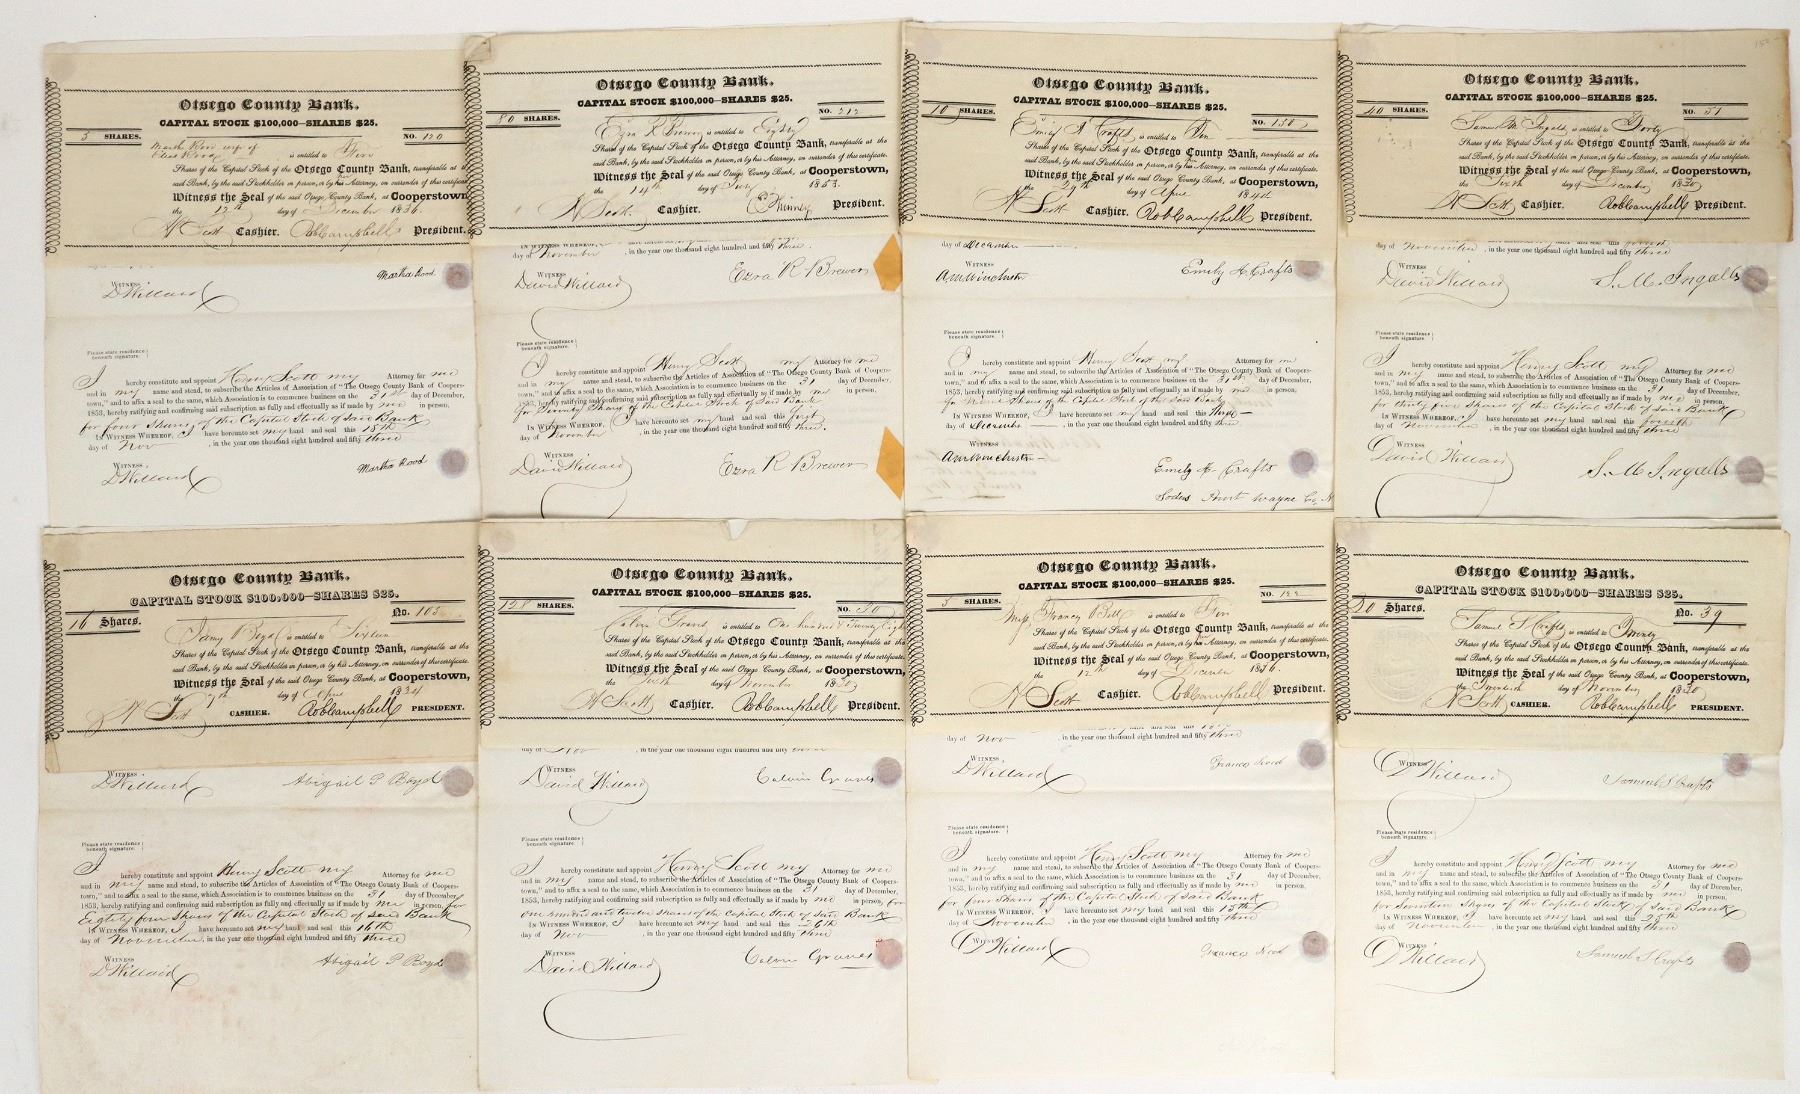 Otsego County Bank.
CAPITAL STOCK $100,000—SHARES $25.
5 SHARES.
NO. 120
Martha Rood wife of
is entitled to Five
Shares of the Capital Stock of the Otsego County Bank, transferable at the
said Bank, by the said Stockholder in person, or by his Attorney, on surrender of this certificate.
Witness the Seal of the said Otsego County Bank, at Cooperstown,
the 12th day of December 1836.
H Scott Cashier. Rob Campbell President.
Martha Rood
WITNESS
D Willard
Please state residence
beneath signature.
I hereby constitute and appoint Henry Scott my Attorney for me
and in my name and stead, to subscribe the Articles of Association of "The Otsego County Bank of Coopers-
town," and to affix a seal to the same, which Association is to commence business on the 31st day of December,
1853, hereby ratifying and confirming said subscription as fully and effectually as if made by me in person,
for four Shares of the Capital Stock of said Bank
IN WITNESS WHEREOF, I have hereunto set my hand and seal this 15th
day of Nov , in the year one thousand eight hundred and fifty three
WITNESS
D Willard
Martha Rood
Otsego County Bank.
CAPITAL STOCK $100,000—SHARES $25.
80 SHARES.
NO. 212
Ezra R Brewer is entitled to Eighty
Shares of the Capital Stock of the Otsego County Bank, transferable at the
said Bank, by the said Stockholder in person, or by his Attorney, on surrender of this certificate.
Witness the Seal of the said Otsego County Bank, at Cooperstown,
the 14th day of July 1853.
H Scott. Cashier. President.
IN WITNESS WHEREOF, have hereunto set my hand and seal this
day of November , in the year one thousand eight hundred and fifty three.
WITNESS
David Willard
Ezra R Brewer
Please state residence
beneath signature.
I hereby constitute and appoint Henry Scott my Attorney for me
and in my name and stead, to subscribe the Articles of Association of "The Otsego County Bank of Coopers-
town," and to affix a seal to the same, which Association is to commence business on the 31 day of December,
1853, hereby ratifying and confirming said subscription as fully and effectually as if made by me in person,
for Seventy Shares of the Capital Stock of Said Bank
IN WITNESS WHEREOF, I have hereunto set my hand and seal this first
day of November , in the year one thousand eight hundred and fifty three.
WITNESS
David Willard
Ezra R Brewer
Otsego County Bank.
CAPITAL STOCK $100,000—SHARES $25.
10 SHARES.
NO. 150
Emily A Crafts is entitled to Ten
Shares of the Capital Stock of the Otsego County Bank, transferable at the
said Bank, by the said Stockholder in person, or by his Attorney, on surrender of this certificate.
Witness the Seal of the said Otsego County Bank, at Cooperstown,
the 29th day of April
H Scott Cashier. Rob Campbell President.
day of December
WITNESS
Emily A. Crafts
Please state residence
beneath signature.
I hereby constitute and appoint Henry Scott my Attorney for me
and in my name and stead, to subscribe the Articles of Association of "The Otsego County Bank of Coopers-
town," and to affix a seal to the same, which Association is to commence business on the 31st day of December,
1853, hereby ratifying and confirming said subscription as fully and effectually as if made by me in person,
for Nine Shares of the Capital Stock of the Said Bank
IN WITNESS WHEREOF, I have hereunto set my hand and seal this Three
day of December , in the year one thousand eight hundred and fifty three
WITNESS
Emily A. Crafts
Sodus Point Wayne Co. N
Otsego County Bank.
CAPITAL STOCK $100,000—SHARES $25.
40 SHARES.
NO. 51
Samuel M Ingalls is entitled to Forty
Shares of the Capital Stock of the Otsego County Bank, transferable at the
said Bank, by the said Stockholder in person, or by his Attorney, on surrender of this certificate.
Witness the Seal of the said Otsego County Bank, at Cooperstown,
the Sixth day of December 1830
H Scott Cashier. Rob Campbell President.
day of November , in the year one thousand eight hundred and fifty three
WITNESS
David Willard
S. M. Ingalls
Please state residence
beneath signature.
I hereby constitute and appoint Henry Scott my Attorney for me
and in my name and stead, to subscribe the Articles of Association of "The Otsego County Bank of Coopers-
town," and to affix a seal to the same, which Association is to commence business on the 31 day of December,
1853, hereby ratifying and confirming said subscription as fully and effectually as if made by me in person,
for thirty five Shares of the Capital Stock of said Bank
IN WITNESS WHEREOF, I have hereunto set my hand and seal this fourth
day of November , in the year one thousand eight hundred and fifty three
WITNESS
David Willard
S. M Ingalls
Otsego County Bank.
CAPITAL STOCK $100,000—SHARES $25.
16 Shares.
No. 103
Boyd is entitled to Sixteen
Shares of the Capital Stock of the Otsego County Bank, transferable at the
said Bank, by the said Stockholder in person, or by his Attorney, on surrender of this certificate.
Witness the Seal of the said Otsego County Bank, at Cooperstown,
the 7th day of April 1834
H Scott CASHIER. Rob Campbell PRESIDENT.
WITNESS
D Willard
Abigail P Boyd
Please state residence
beneath signature.
I hereby constitute and appoint Henry Scott my Attorney for me
and in my name and stead, to subscribe the Articles of Association of "The Otsego County Bank of Coopers-
town," and to affix a seal to the same, which Association is to commence business on the 31 day of December,
1853, hereby ratifying and confirming said subscription as fully and effectually as if made by me in person, for
Eighty four Shares of the Capital Stock of said Bank
IN WITNESS WHEREOF, I have hereunto set my hand and seal this 16th
day of November, in the year one thousand eight hundred and fifty three
WITNESS
D Willard
Abigail P Boyd
Otsego County Bank.
CAPITAL STOCK $100,000—SHARES $25.
128 SHARES.
NO. 30
Calvin Graves is entitled to One hundred & Twenty Eight
Shares of the Capital Stock of the Otsego County Bank, transferable at the
said Bank, by the said Stockholder in person, or by his Attorney, on surrender of this certificate.
Witness the Seal of the said Otsego County Bank, at Cooperstown,
the day of November 1830
H Scott Cashier. Rob Campbell President.
day of Nov , in the year one thousand eight hundred and fifty three
WITNESS
David Willard
Calvin Graves
Please state residence
beneath signature.
I hereby constitute and appoint Henry Scott my Attorney for me
and in my name and stead, to subscribe the Articles of Association of "The Otsego County Bank of Coopers-
town," and to affix a seal to the same, which Association is to commence business on the 31 day of December,
1853, hereby ratifying and confirming said subscription as fully and effectually as if made by me in person, for
one hundred and twelve shares of the Capital Stock of Said Bank
IN WITNESS WHEREOF, I have hereunto set my hand and seal this 26th
day of Nov , in the year one thousand eight hundred and fifty three
WITNESS
David Willard
Calvin Graves
Otsego County Bank.
CAPITAL STOCK $100,000—SHARES $25.
5 SHARES.
NO. 122
Miss Francy Bill is entitled to Five
Shares of the Capital Stock of the Otsego County Bank, transferable at the
said Bank, by the said Stockholder in person, or by his Attorney, on surrender of this certificate.
Witness the Seal of the said Otsego County Bank, at Cooperstown,
the 12th day of December 1836.
H Scott Cashier. Rob Campbell President.
day of Nov , in the year one thousand eight hundred and fifty three
WITNESS
D Willard
Please state residence
beneath signature.
I hereby constitute and appoint Henry Scott my Attorney for me
and in my name and stead, to subscribe the Articles of Association of "The Otsego County Bank of Coopers-
town," and to affix a seal to the same, which Association is to commence business on the 31 day of December,
1853, hereby ratifying and confirming said subscription as fully and effectually as if made by me in person,
for four Shares of the Capital Stock of Said Bank
IN WITNESS WHEREOF, I have hereunto set my hand and seal this 15th
day of November , in the year one thousand eight hundred and fifty three
WITNESS
D Willard
Otsego County Bank.
CAPITAL STOCK $100,000—SHARES $25.
20 Shares.
No. 39
Samuel S Crafts is entitled to Twenty
Shares of the Capital Stock of the Otsego County Bank, transferable at the
said Bank, by the said Stockholder in person, or by his Attorney, on surrender of this certificate.
Witness the Seal of the said Otsego County Bank, at Cooperstown,
the day of November 1830
H Scott CASHIER. Rob Campbell PRESIDENT.
WITNESS
D Willard
Samuel S Crafts
Please state residence
beneath signature.
I hereby constitute and appoint Henry Scott my Attorney for me
and in my name and stead, to subscribe the Articles of Association of "The Otsego County Bank of Coopers-
town," and to affix a seal to the same, which Association is to commence business on the 31 day of December,
1853, hereby ratifying and confirming said subscription as fully and effectually as if made by me in person,
for Seventeen Shares of the Capital Stock of Said Bank
IN WITNESS WHEREOF, I have hereunto set my hand and seal this 25th
day of November , in the year one thousand eight hundred and fifty three
WITNESS
D Willard
Samuel S Crafts